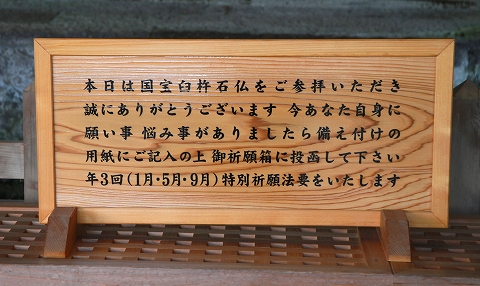 本日は国宝臼杵石仏をご参拝いただき
誠にありがとうございます 今あなた自身に
願い事 悩み事がありましたら備え付けの
用紙にご記入の上 御祈願箱に投函して下さい
年3回(1月・5月・9月)特別祈願法要をいたします